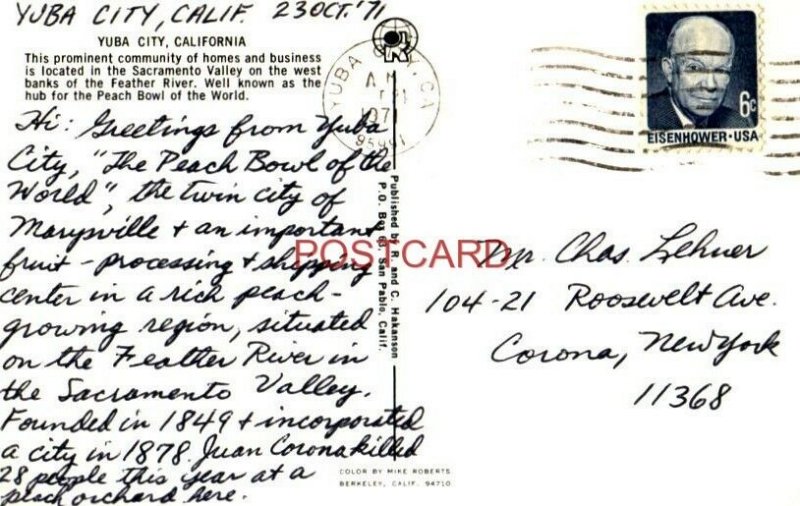 YUBA CITY, CALIF. 23 OCT. '71
YUBA CITY, CALIFORNIA
This prominent community of homes and business
is located in the Sacramento Valley on the west
banks of the Feather River. Well known as the
hub for the Peach Bowl of the World.
Hi: Greetings from Yuba
City, "The Peach Bowl of the
World", the twin city of
Marysville + an important
fruit-processing + shipping
center in a rich peach-
growing region, situated
on the Feather River in
the Sacramento Valley.
Founded in 1849 + incorporated
a city in 1878. Juan Corona killed
28 people this year at a
peach orchard here.
Published by R. and C. Hakanson
P.O. Box 63, San Pablo, Calif.
COLOR BY MIKE ROBERTS
BERKELEY, CALIF. 94710
YUBA CITY, CA
AM
197
95991
6c
EISENHOWER·USA
POSTCARD
Mr. Chas. Lehner
104-21 Roosevelt Ave.
Corona, New York
11368